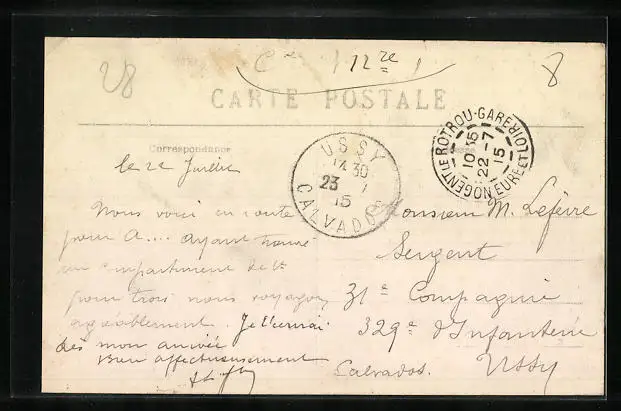 28
Cie 12re
8
CARTE POSTALE
Correspondance
NOGENT LE ROTROU-GARE EURE ET LOIR
10 35
22 -7
15
USSY
14 30
23 7
15
CALVADOS
le 22
Nous voici en route
pour A.... ayant trouvé
un compartiment de
pour trois nous voyageons
agréablement. Je t'écrirai
dès mon arrivée
Bien affectueusement
Monsieur M. Lefèvre
Sergent
31e Compagnie
329e d'Infanterie
Ussy
Calvados.